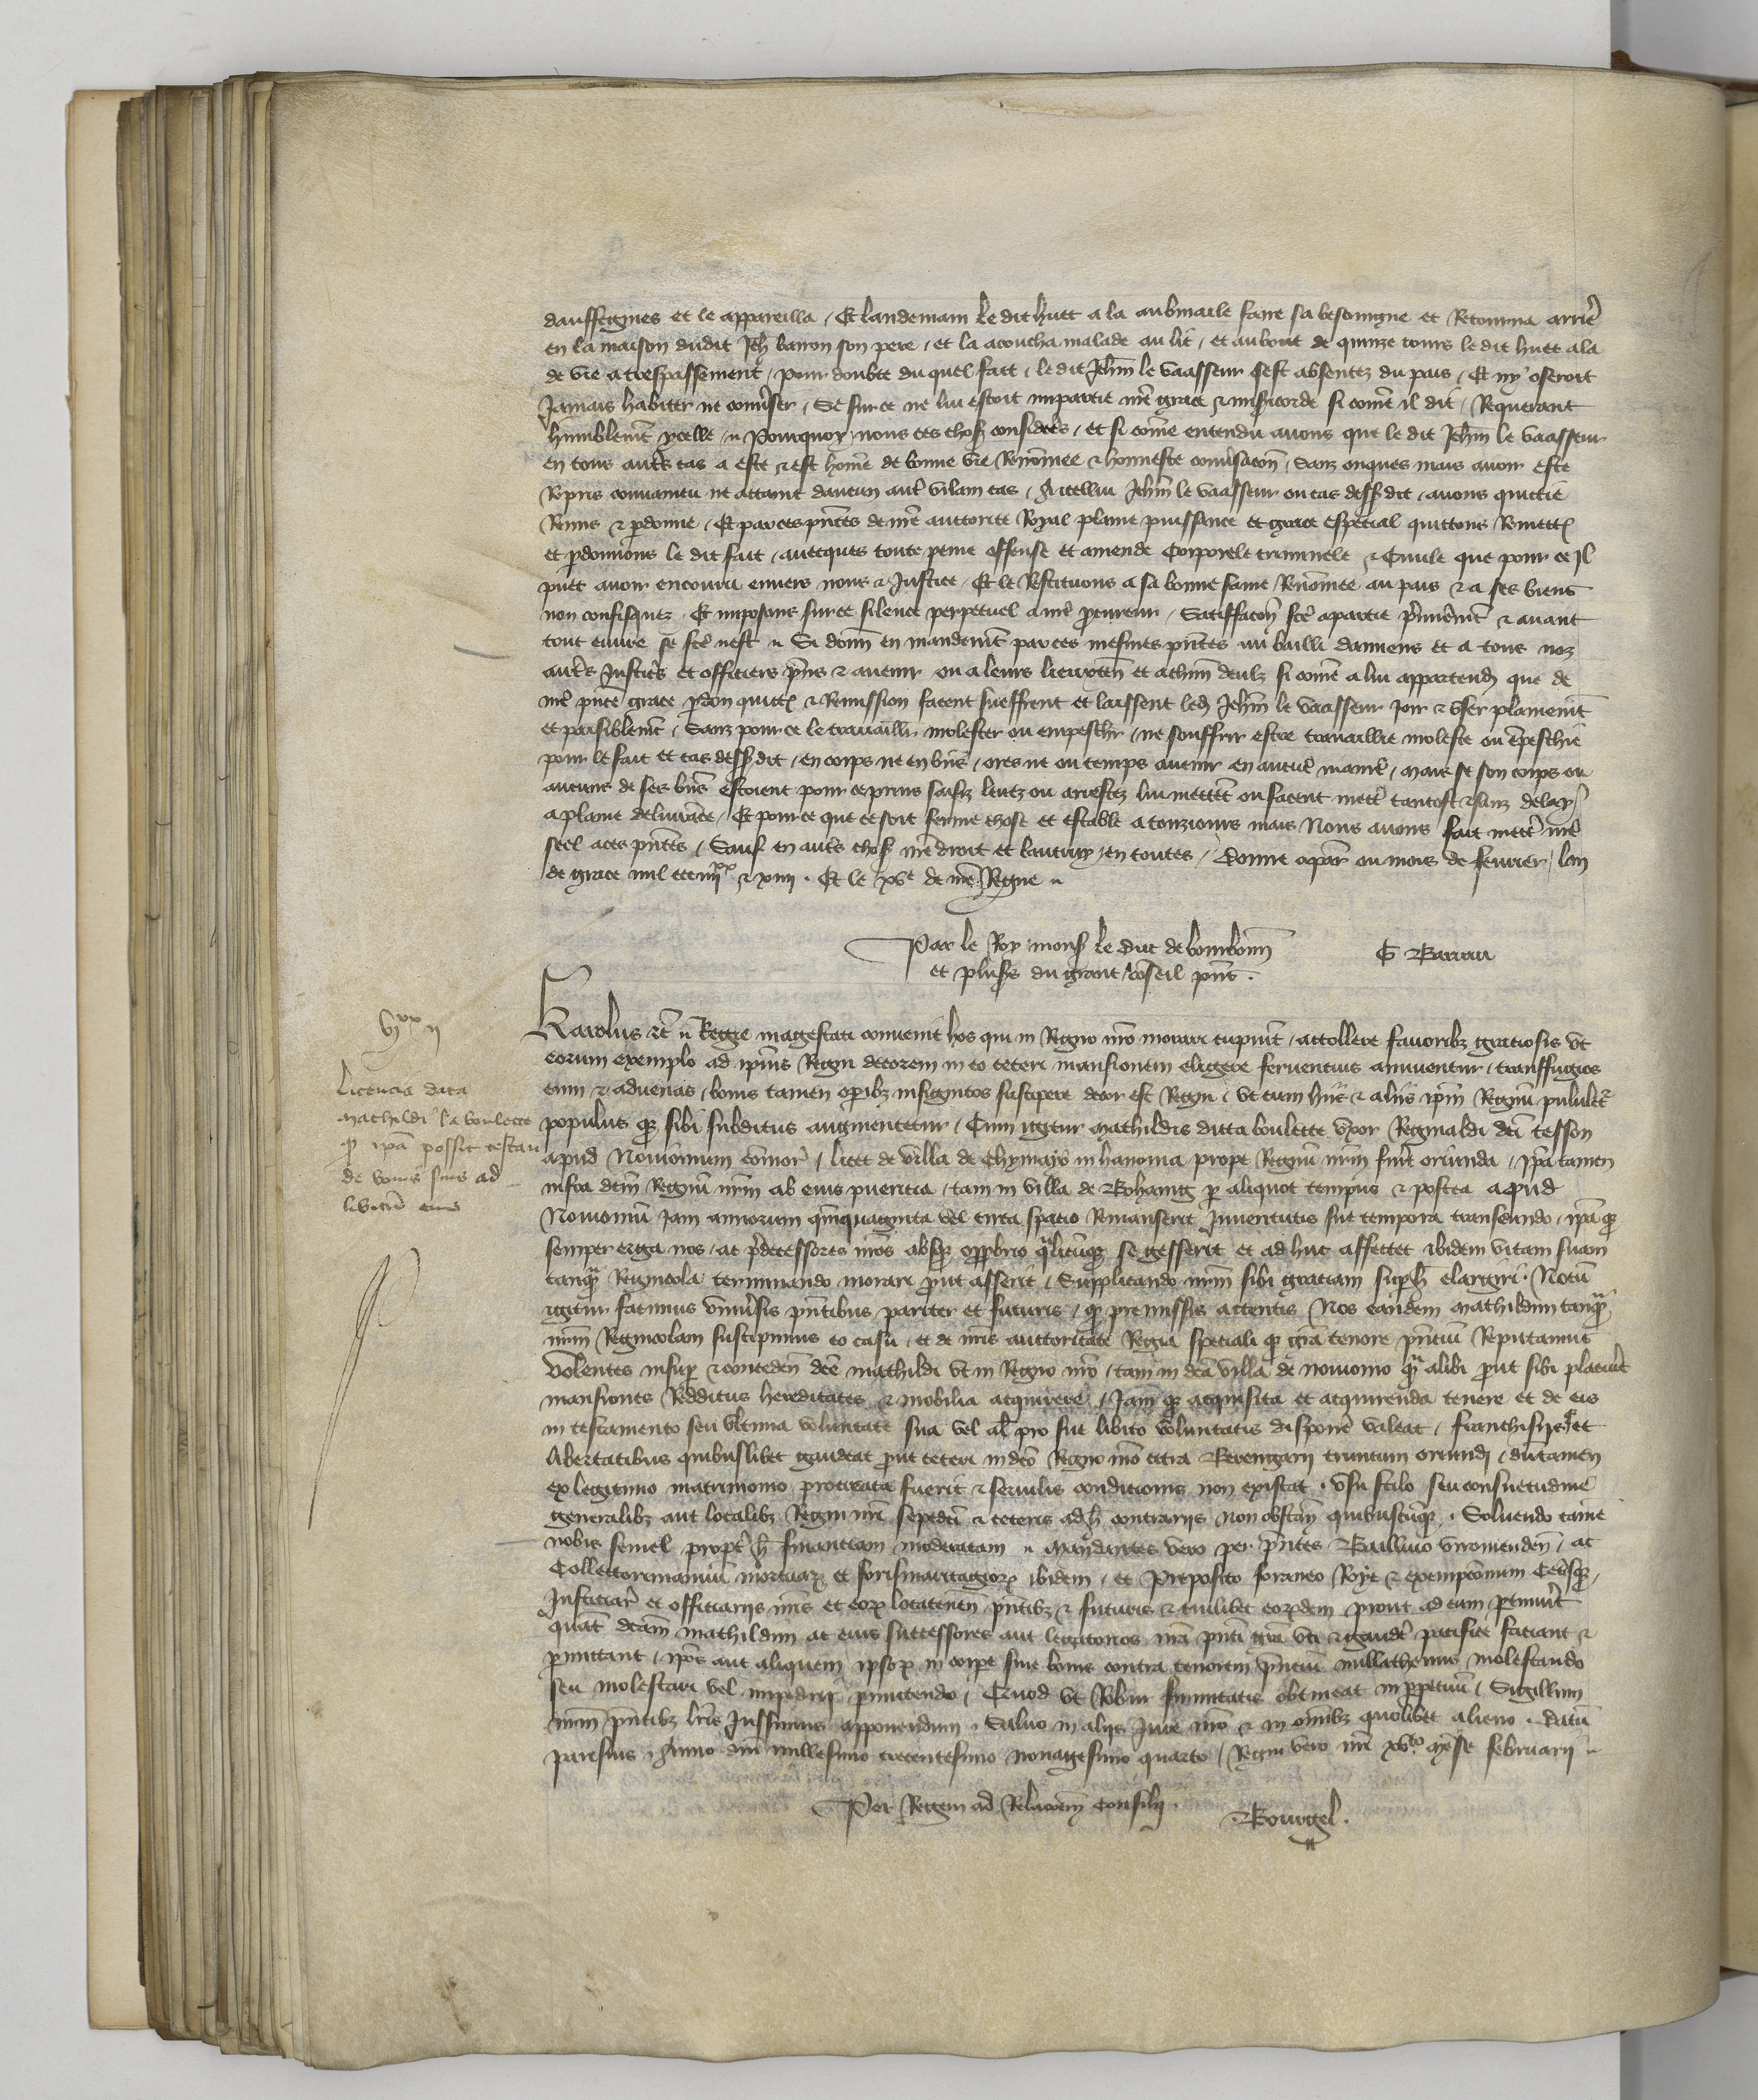 dauffegnies et le appareilla / Et landemain le dit huet a la aubmaile faire sa besoingne et Retourna arrier
en la maison dudit Jeh baron son pere / et la acoucha malade au lit / et au bout de quinze jours le dit huet ala
de vie a trespassement / pour doubte du quel fait / le dit Jehan le vaasseur sest absentez du pais / Et ny oseroit
Jamais habiter ne converser / Se sur ce ne lui estoit impartie nre grace & misericorde si come il dit / Requerant
humblemt ycelle // Pourquoy / nous ces choses considerees / et si come entendu avons que le dit Jehan le vaasseur
en tous autres cas a este & est home de bonne vie Renomee & honneste conversacon / Sanz onques mais avoir este
Repris convaincu ne attaint daucun autre vilain cas / A icellui Jehan le vaasseur ou cas dessus dit / avons quittie
Remis & pardonne / Et par ces pntes de nre auctorite Royal plaine puissance et grace especial quittons Remettons
et pardonnons le dit fait / avecques toute peine offense et amende Corporele criminele & Civile que pour ce Il
puet avoir encouru envers nous & Justice / Et le Restituons a sa bonne fame Renomee au pais & a ses biens
non confisquez . Et imposons sur ce silence perpetuel a nre procureur / Satiffacon fce a partie premierement & avant
tout euvre se fce nest // Si donns en mandemt par ces mesmes pntes au bailli damiens et a tous noz
autres Justiciers et officiers pns & avenir ou a leurs lieuxten et a chun deulz si come a lui appartendra que de
nre pnte grace pardon quittce & Remission facent sueffrent et laissent led Jehan le vaasseur Joir & user plainemt
et paisiblemt / Sanz pour ce le travaillr molester ou empeschr / ne souffrir estre travaillie moleste ou empeschie
pour le fait et cas dess dit / en corps ne en biens / ores ne ou temps avenir en aucune maniere / Mais se son corps ou
aucuns de ses biens estoient pour ce prins saisiz levez ou arrestez lui mettent ou facent mettre tantost & sanz delay
a plaine delivrance / Et pour ce que ce soit ferme chose et estable a touzjours mais Nous avons fait mettre nre
seel a ces pntes / Sauf en autres choses nre droit et lautruy / en toutes / Donne a Paris ou mois de fevrier / lan
de grace mil ccc iiiixx & xiiii . Et le xve de nre Regne //
Par le Roy mons le duc de bourbonn
et plusrs du grant conseil pns .
G Barrau
vixx ii
Licencia data
mathildi la boulette
q ipa possit testari
de bonis suis ad
libitum eius
Karolus &c // Regie magestati convenit hos qui in Regno nro morari cupiunt / attollere favoribz gratiosis ut
eorum exemplo ad ipius Regni decorem in eo ceteri mansionem eligere ferventius annuentur / transffugios
enim & advenas / bonis tamen operibz insignitos suscipere decor est Regni / ut cum hiis & aliis ipm Regnu pululet
populus qz sibi subditus augmentetur / Cum igitur mathildis dicta boulette uxor Reginaldi dci tesson
apud Noviomum comor / licet de villa de Chymays in hanonia prope Regnu nrm fuerit oriunda / ipa tamen
infra dcm Regnu nrm ab eius pueritia / tam in villa de Bohaing p aliquot tempus & postea apud
Noviomu Jam annorum quinquaginta vel circa spatio Remanserit Juventutis sue tempora transeundo / ipa qz
semper erga nos / ac predecessores nros absqz opprbrio qualitercumqz se gesserit et ad huc affectet ibidem vitam suam
tanqua Regnicola terminando morari prout asserit / Supplicando nrm sibi gratiam super h elargiri . Notu
igitur facimus universis pntibus pariter et futuris / q premissis attentis Nos eandem mathildim tanqua
nram Regnicolam suscipimus eo casu / et de nris auctoritate Regia speciali qz gra tenore pntiu Reputamus
Volentes insup & conceden dce mathildi ut in Regno nro / tam in dca villa de noviomo qua alibi prout sibi placuerit
mansiones Redditus hereditates & mobilia acquirere / Jam qz acquisita et acquirenda tenere et de eis
in testamento seu ultima voluntate sua vel al pro sue libito voluntatis disponere valeat / franchisiis et
libertatibus quibuslibet gaudeat prout ceteri in dco Regno nro citra Berengarii trivium oriundi / dutamen
ex legitimo matrimonio procreata fuerit & servilis conditionis non existat . Usu stilo seu consuetudine
generalibz aut localibz Regni nri sepedci & ceteris ad h contrariis non obstan quibuscumqz . Solvendo tame
nobis semel propter h financiam moderatam // Mandantes vero per pntes Baillivo viromenden / ac
Collectori manuu mortuarum et forismaritagiorum ibidem / et Preposito foraneo Roye & exemptionum Ceterisqz
Justiciar et officiariis nris et eorum locatenen pntibz & futuris & cuilibet eorumdem prout ad eum ptinuerit
quat dcam mathildim ac eius successores aut legitarios nra pnti gra uti & gaudere pacifice faciant &
pmittant / ipos aut aliquem ipsorum in corpe sive bonis contra tenorem pntiu nullathenus molestando
seu molestari vel impediri pmittendo / Quod ut Robur firmitatis obtineat in ppetuu / Sigillum
nrm pntibz lris Jussimus apponendum . Salvo in aliis Jure nro & in omibz quolibet alieno . Datu
parisius / Anno dni millesimo trecentesimo nonagesimo quarto / Regni vero nri xvto Mense februarii //
Per Regem ad Relacoem consilii .
Bourgel .